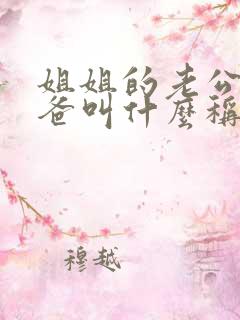 姐姐的老公
爸叫什麼稱
穆越